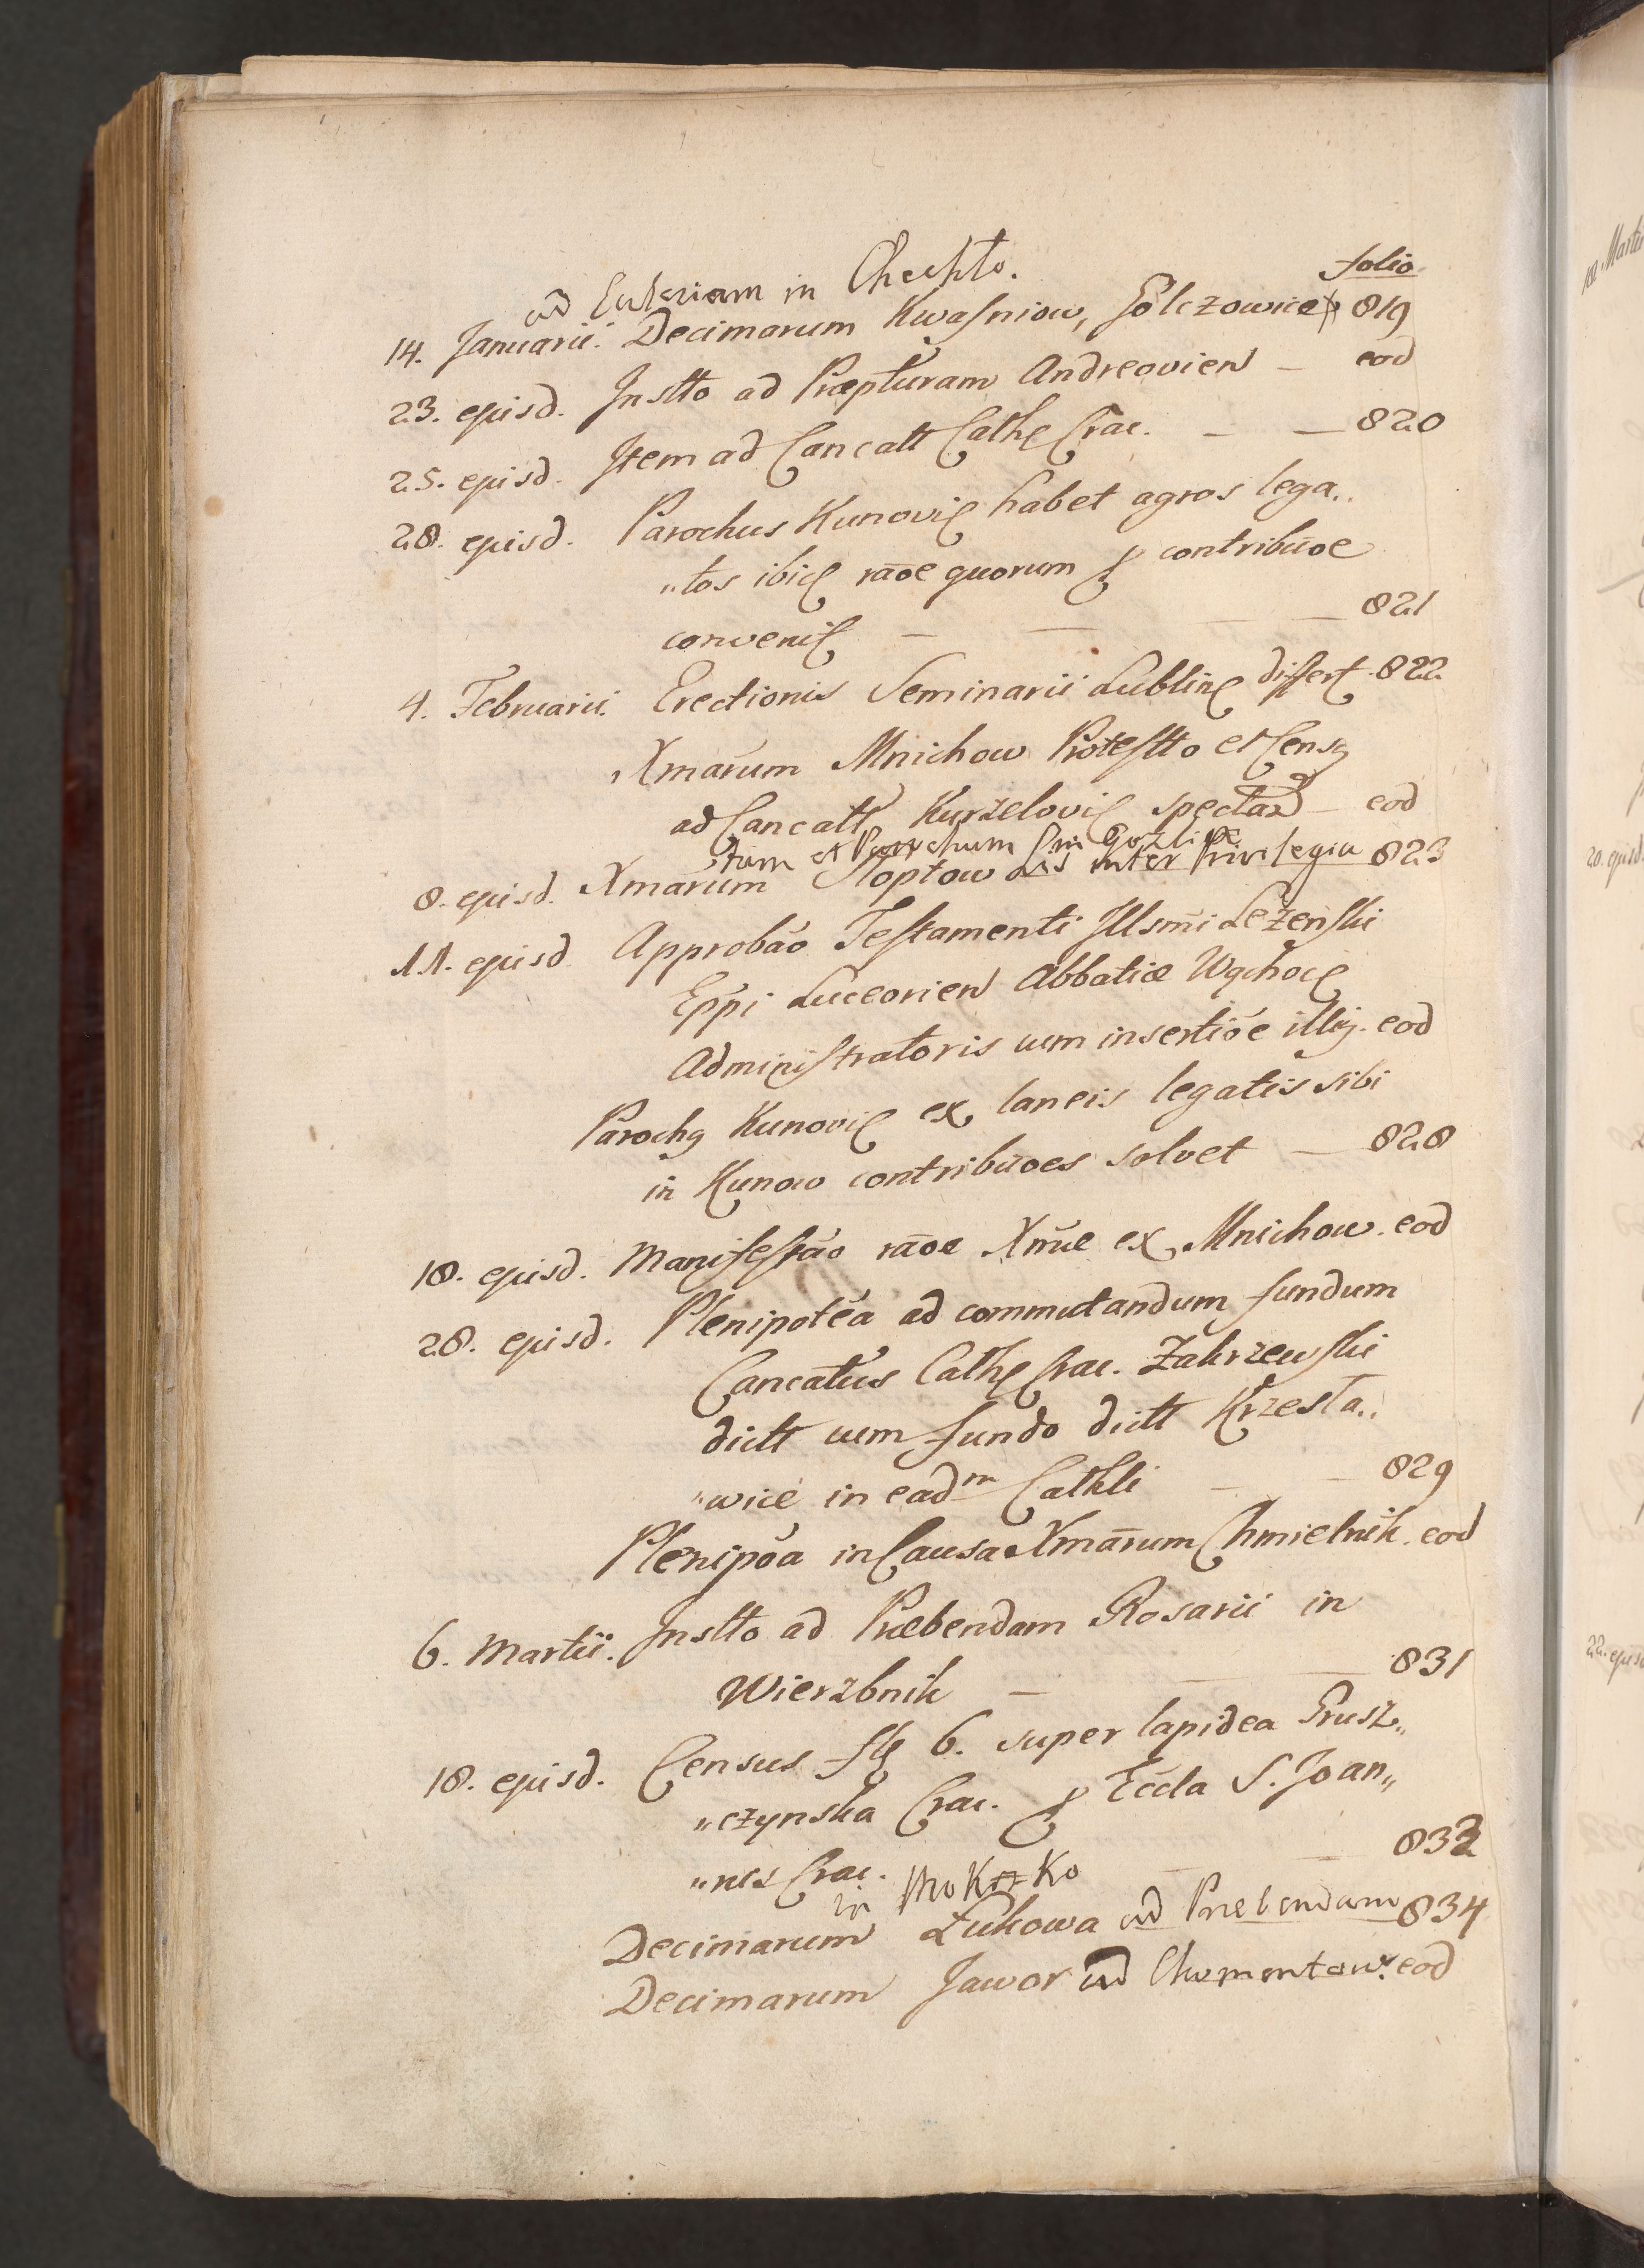 folio
ad Ecclesiam in Chechlo.
14. Januarii. Decimarum Kwasniow, Golczowice 819
23. ejusd. Instto ad Præpturam Andreovien – eod
25. ejusd. Item ad Cancatt Cath Crac. – – 820
28. ejusd. Parochus Kunovic habet agros lega„
„tos ibid raõe quorum p contribuõe
convenit – – – 821
4. Februarii. Erectionis Seminarii Lublin differt 822
Xmarum Mnichow Protestto et Censq
ad Cancatt Kurzelovic spectañ – eod
tum et Parochum in Gozlice
8. ejusd. Xmarum Kloptow Lis inter Privilegia 823
11. ejusd Approbão Testamenti Illsmi Lezenski
Eppi Luceorien Abbatiæ Wąchoc
Administratoris cum insertiõe illiq. eod
Parochq Kunovic ex laneis legatis sibi
in Kunow contribuões solvet – 828
18. ejusd. Manifestão raõe Xmæ ex Mnichow. eod
28. ejusd. Plenipotẽa ad commutandum fundum
Cancatus Cath Crac. Zakrzewski
dictt cum fundo dictt Krzesła„
„wice in eadm Cathli – – 829
Plenipõa in Causa Xmarum Chmielnik. eod
6. Martii. Instto ad Præbendam Rosarii in
Wierzbnik – – – 831
18. ejusd. Census fl 6. super lapidea Prusz„
„czynska Crac. p Eccla S. Joan„
„nis Crac. – – 833
in Mokrzko
Decimarum Łukowa ad Praebendam 834
Decimarum Jawor ad Chomentow. eod